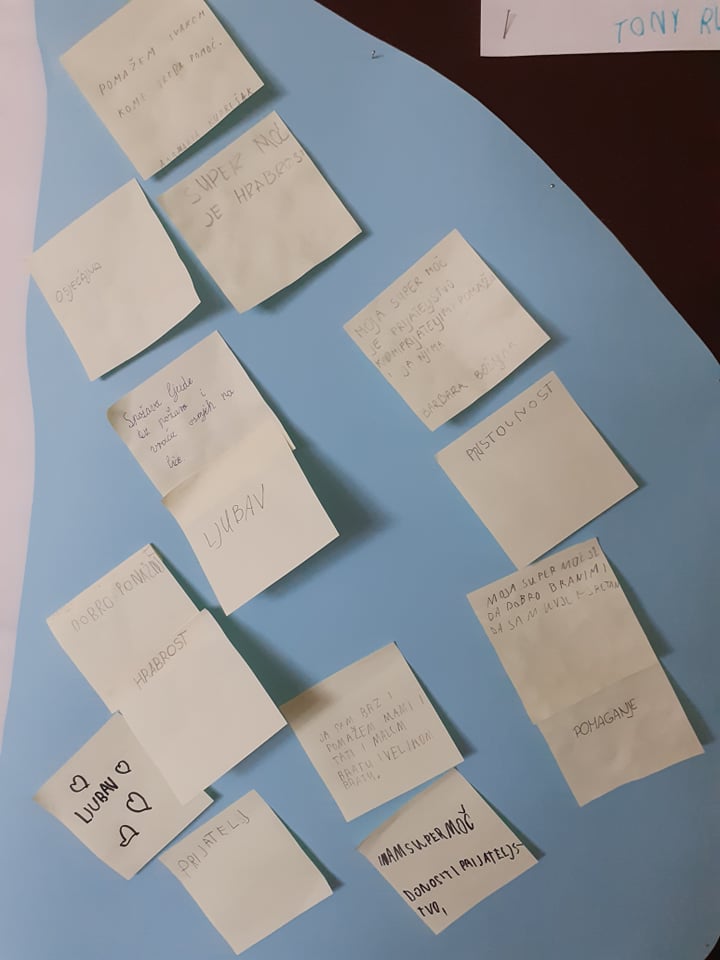 TONY RU
POMAŽEM SVAKOM
KOME TREBA POMOĆ.
SUPER MOĆ
JE HRABROS
OSJEĆAJNA
MOJA SUPER MOĆ
JE PRIJATELJSTVO
PRIJATELJIMA POMAŽ
I JA NJIMA
BARBARA
Spašava ljude
iz požara i
vraća osmjeh na
lice.
LJUBAV
PRISTOJNOST
DOBRO PONAŠ
HRABROST
MOJA SUPER MOĆ JE
DA DOBRO BRANIM I
DA SAM UVIJEK SRETAN
POMAGANJE
JA SAM BRZ I
POMAŽEM MAMI I
TATI I MALOM
BRATU I VELIKOM
BRATU.
LJUBAV
PRIJATELJ
IMAM SUPER MOČ
DONOSITI PRIJATELJS-
TVO,